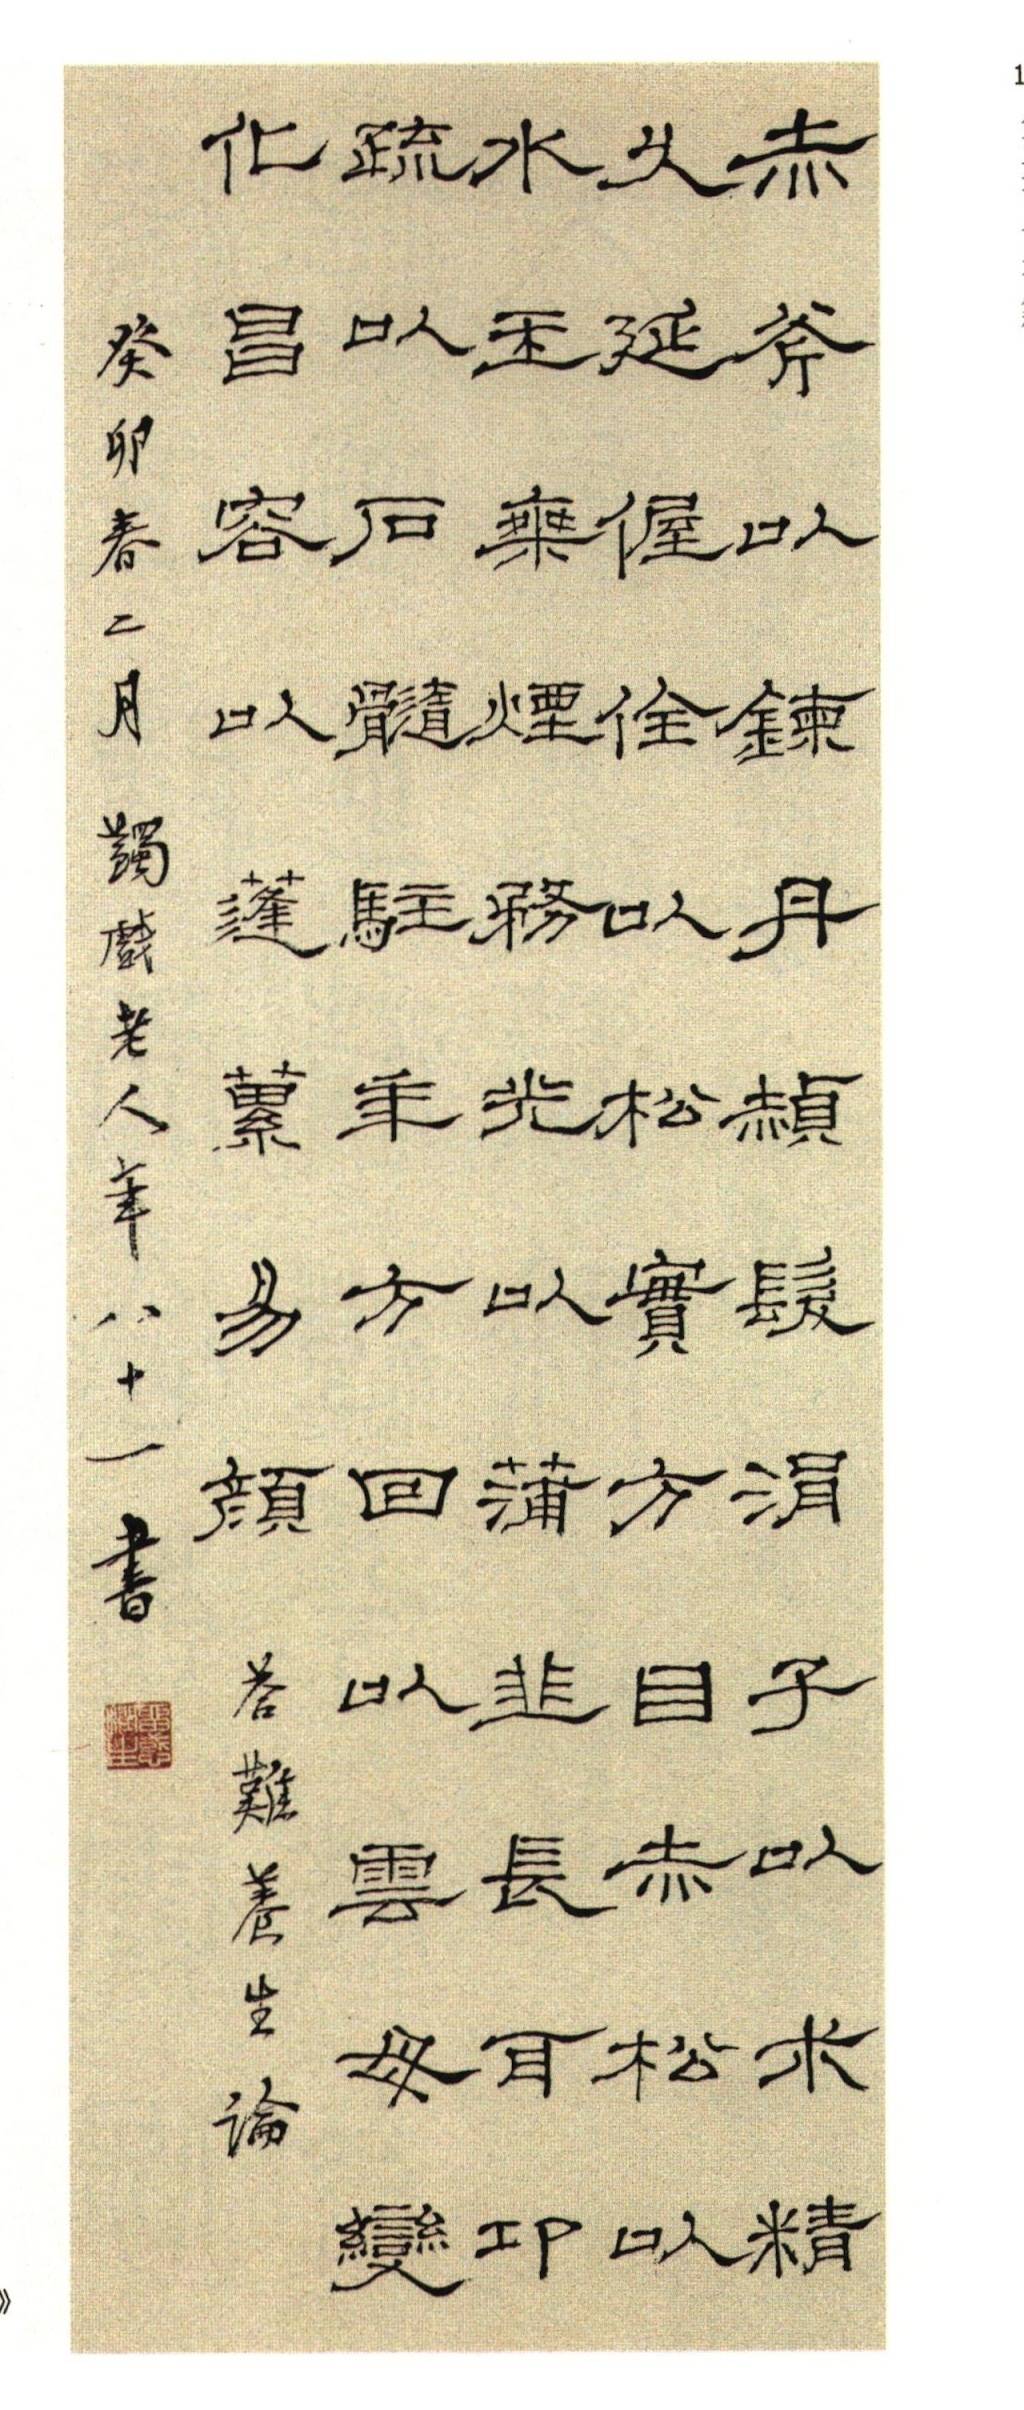 赤斧以鍊丹赬髮涓子以朮精
久延偓佺以松實方目赤松以
水玉乘煙務光以蒲韭長耳邛
疏以石髓駐年方回以雲母變
化昌容以蓬蔂易顏 答難養生論
癸卯春二月 蠲戲老人年八十一書